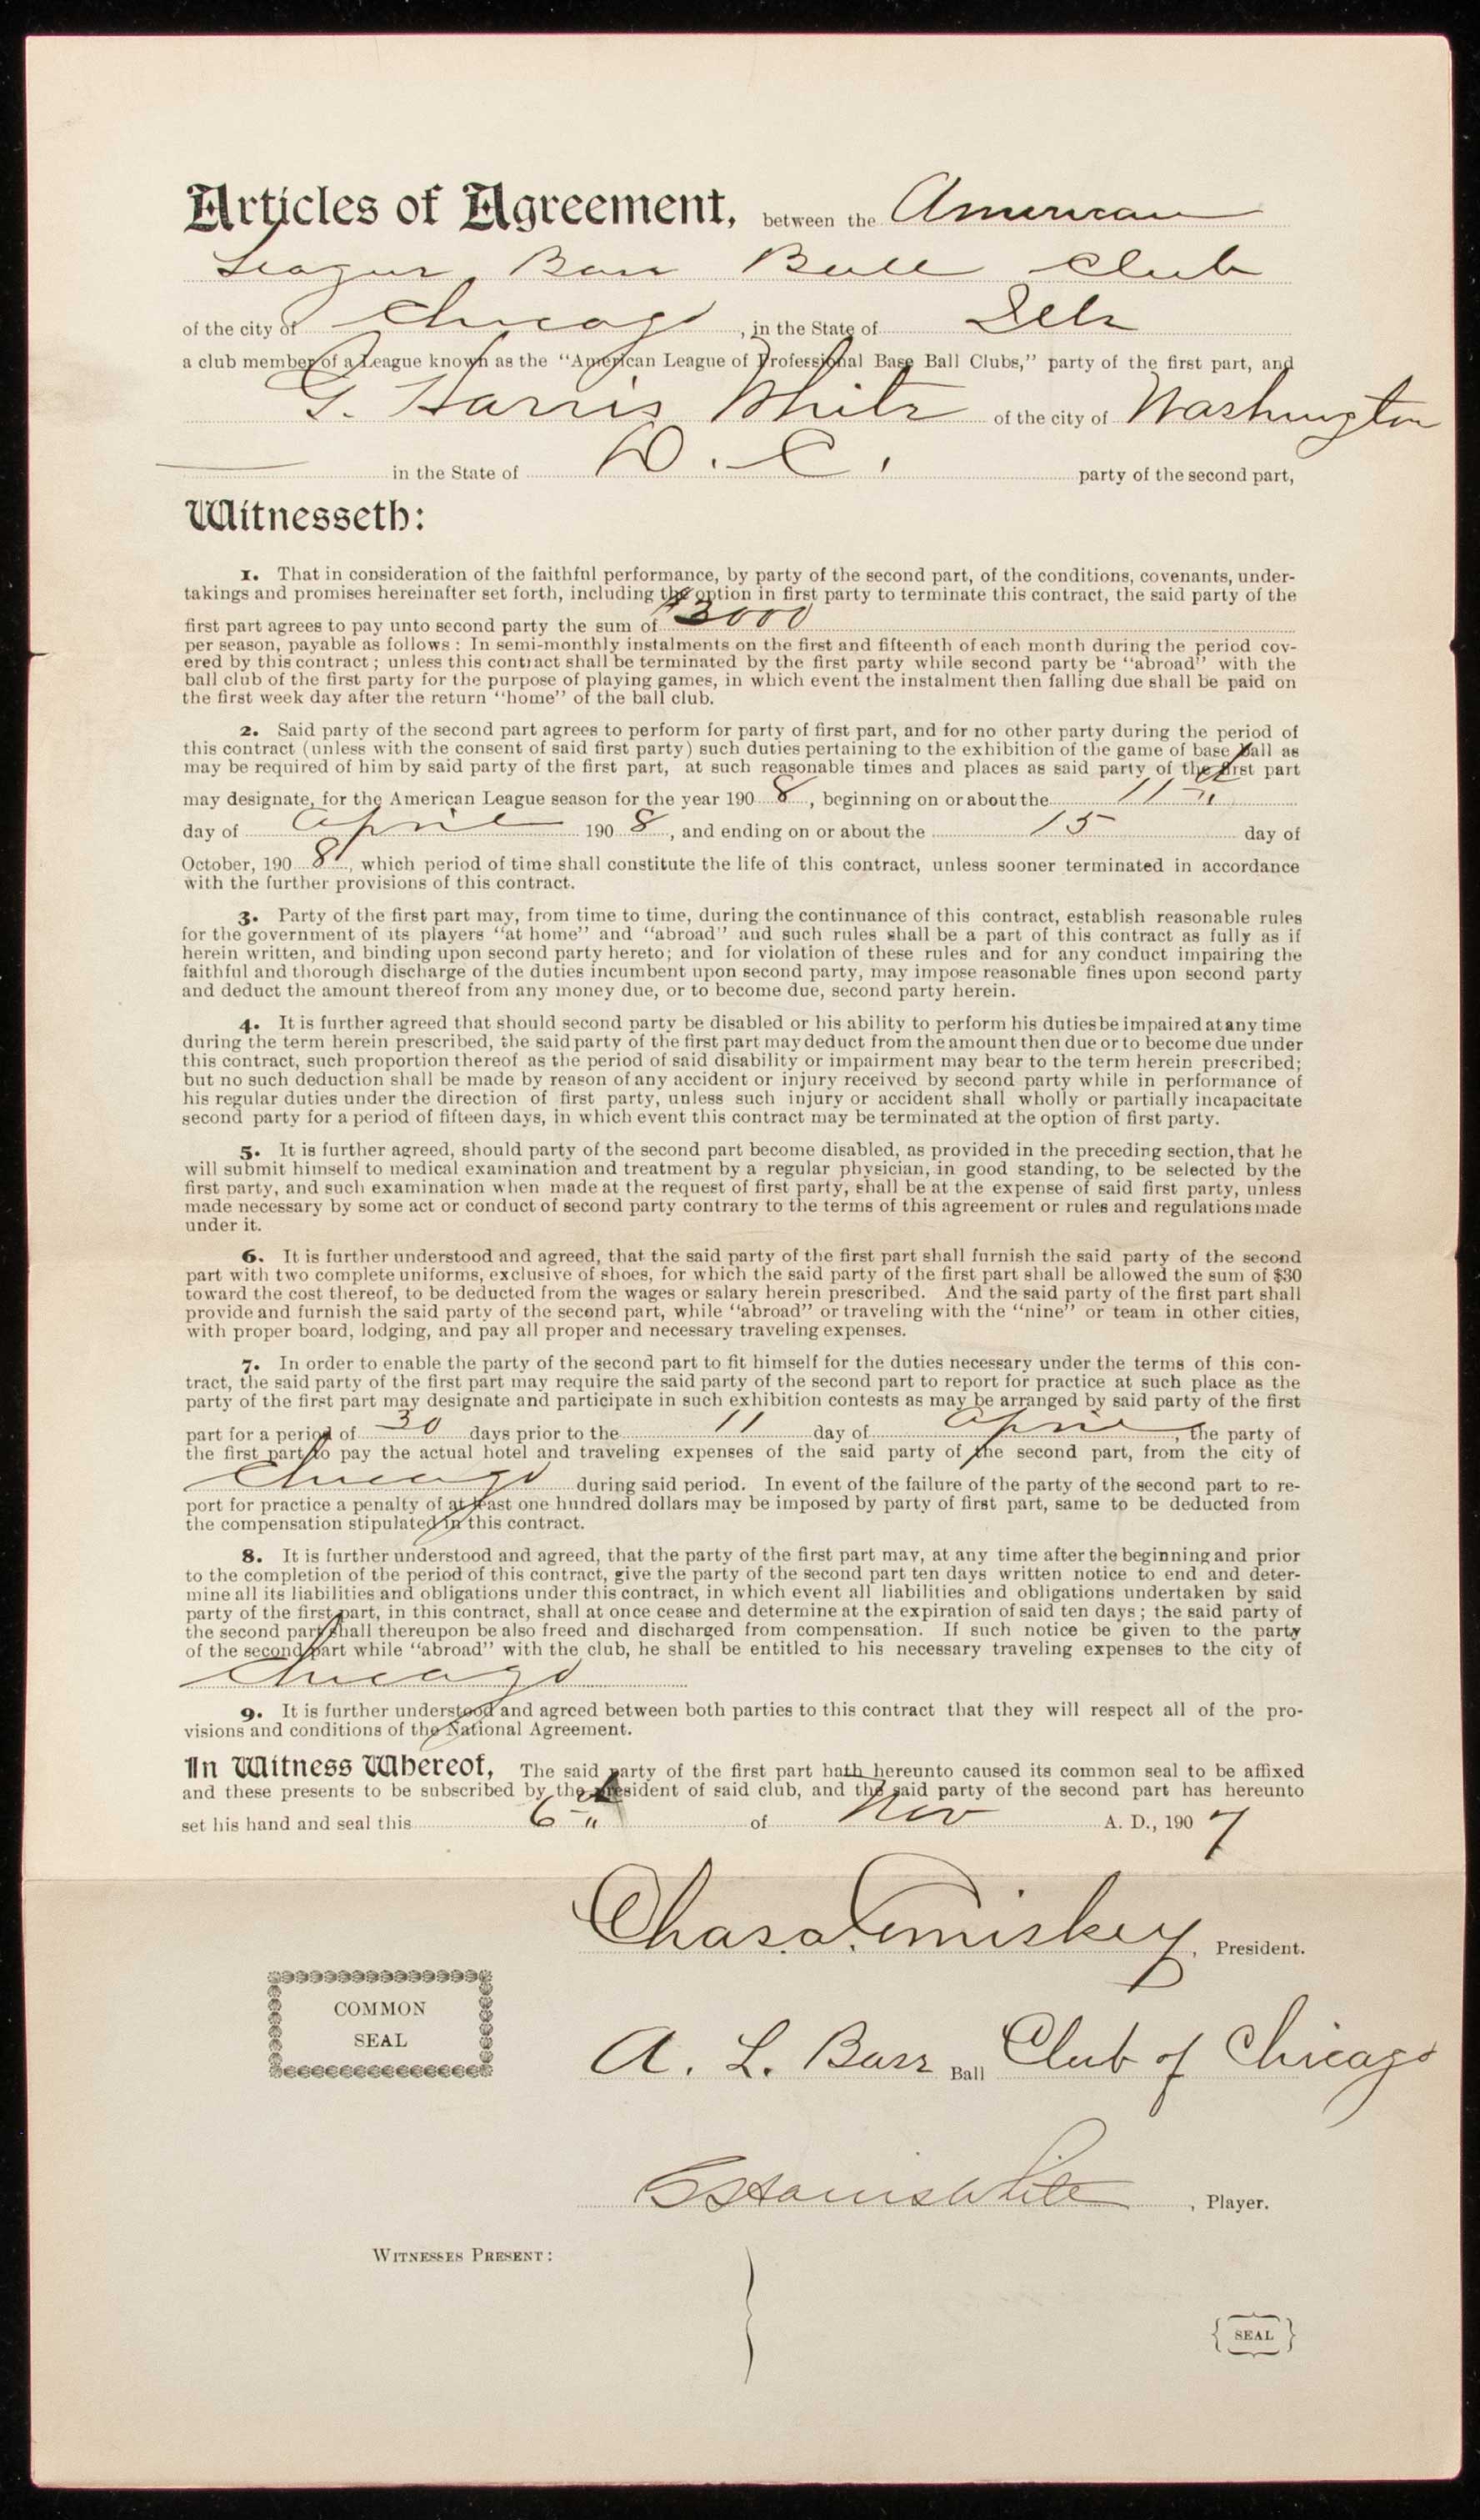 Articles of Agreement, between the American
League Base Ball Club
of the city of Chicago, in the State of Ills
a club member of a League known as the "American League of Professional Base Ball Clubs," party of the first part, and
G. Harris White of the city of Washington
in the State of D. C. party of the second part,
Witnesseth:
1. That in consideration of the faithful performance, by party of the second part, of the conditions, covenants, under-
takings and promises hereinafter set forth, including the option in first party to terminate this contract, the said party of the
first part agrees to pay unto second party the sum of $3000
per season, payable as follows: In semi-monthly instalments on the first and fifteenth of each month during the period cov-
ered by this contract; unless this contract shall be terminated by the first party while second party be "abroad" with the
ball club of the first party for the purpose of playing games, in which event the instalment then falling due shall be paid on
the first week day after the return "home" of the ball club.
2. Said party of the second part agrees to perform for party of first part, and for no other party during the period of
this contract (unless with the consent of said first party) such duties pertaining to the exhibition of the game of base ball as
may be required of him by said party of the first part, at such reasonable times and places as said party of the first part
may designate, for the American League season for the year 1908, beginning on or about the 11th
day of April 1908, and ending on or about the 15 day of
October, 1908, which period of time shall constitute the life of this contract, unless sooner terminated in accordance
with the further provisions of this contract.
3. Party of the first part may, from time to time, during the continuance of this contract, establish reasonable rules
for the government of its players "at home" and "abroad" and such rules shall be a part of this contract as fully as if
herein written, and binding upon second party hereto; and for violation of these rules and for any conduct impairing the
faithful and thorough discharge of the duties incumbent upon second party, may impose reasonable fines upon second party
and deduct the amount thereof from any money due, or to become due, second party herein.
4. It is further agreed that should second party be disabled or his ability to perform his duties be impaired at any time
during the term herein prescribed, the said party of the first part may deduct from the amount then due or to become due under
this contract, such proportion thereof as the period of said disability or impairment may bear to the term herein prescribed;
but no such deduction shall be made by reason of any accident or injury received by second party while in performance of
his regular duties under the direction of first party, unless such injury or accident shall wholly or partially incapacitate
second party for a period of fifteen days, in which event this contract may be terminated at the option of first party.
5. It is further agreed, should party of the second part become disabled, as provided in the preceding section, that he
will submit himself to medical examination and treatment by a regular physician, in good standing, to be selected by the
first party, and such examination when made at the request of first party, shall be at the expense of said first party, unless
made necessary by some act or conduct of second party contrary to the terms of this agreement or rules and regulations made
under it.
6. It is further understood and agreed, that the said party of the first part shall furnish the said party of the second
part with two complete uniforms, exclusive of shoes, for which the said party of the first part shall be allowed the sum of $30
toward the cost thereof, to be deducted from the wages or salary herein prescribed. And the said party of the first part shall
provide and furnish the said party of the second part, while "abroad" or traveling with the "nine" or team in other cities,
with proper board, lodging, and pay all proper and necessary traveling expenses.
7. In order to enable the party of the second part to fit himself for the duties necessary under the terms of this con-
tract, the said party of the first part may require the said party of the second part to report for practice at such place as the
party of the first part may designate and participate in such exhibition contests as may be arranged by said party of the first
part for a period of 30 days prior to the 11 day of April, the party of
the first part to pay the actual hotel and traveling expenses of the said party of the second part, from the city of
Chicago during said period. In event of the failure of the party of the second part to re-
port for practice a penalty of at least one hundred dollars may be imposed by party of first part, same to be deducted from
the compensation stipulated in this contract.
8. It is further understood and agreed, that the party of the first part may, at any time after the beginning and prior
to the completion of the period of this contract, give the party of the second part ten days written notice to end and deter-
mine all its liabilities and obligations under this contract, in which event all liabilities and obligations undertaken by said
party of the first part, in this contract, shall at once cease and determine at the expiration of said ten days; the said party of
the second part shall thereupon be also freed and discharged from compensation. If such notice be given to the party
of the second part while "abroad" with the club, he shall be entitled to his necessary traveling expenses to the city of
Chicago
9. It is further understood and agreed between both parties to this contract that they will respect all of the pro-
visions and conditions of the National Agreement.
In Witness Whereof, The said party of the first part hath hereunto caused its common seal to be affixed
and these presents to be subscribed by the president of said club, and the said party of the second part has hereunto
set his hand and seal this 6th of Nov A. D., 1907
Chas. A. Comiskey, President.
COMMON
SEAL
A. L. Base Ball Club of Chicago
G Harris White, Player.
WITNESSES PRESENT:
SEAL